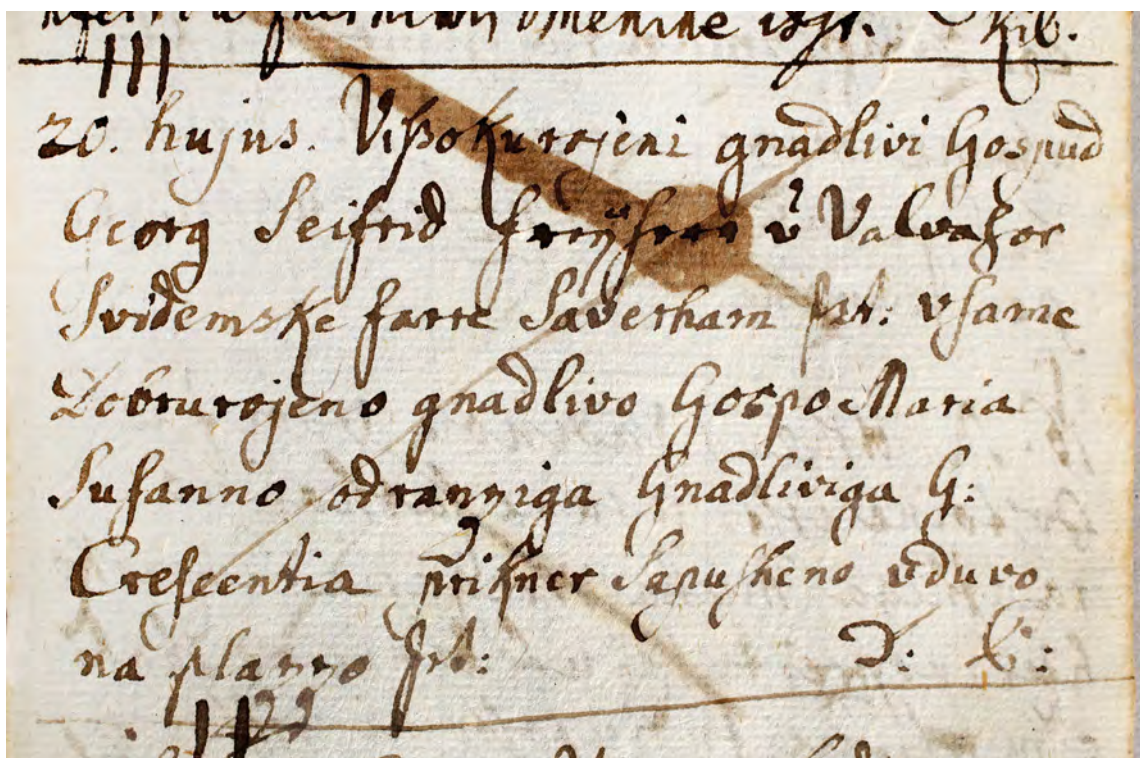 omenine Kib.
III
20. hujus. Vißokurojeni gnadlivi Gospud
Georg Seifrid freÿherr v Valvasor
Svidemske farre Saverham ſvt: vsame
Dobrurojeno gnadlivo Gospo Maria
Susanno odranziga Gnadliviga G:
Crescentia Prikner Sapusheno vduvo
na planzo ſvt: D: C: